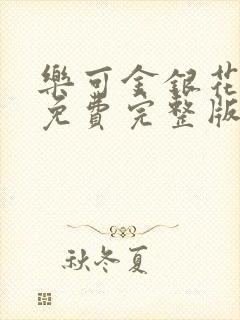 樂可金銀花
免費完整版
秋冬夏